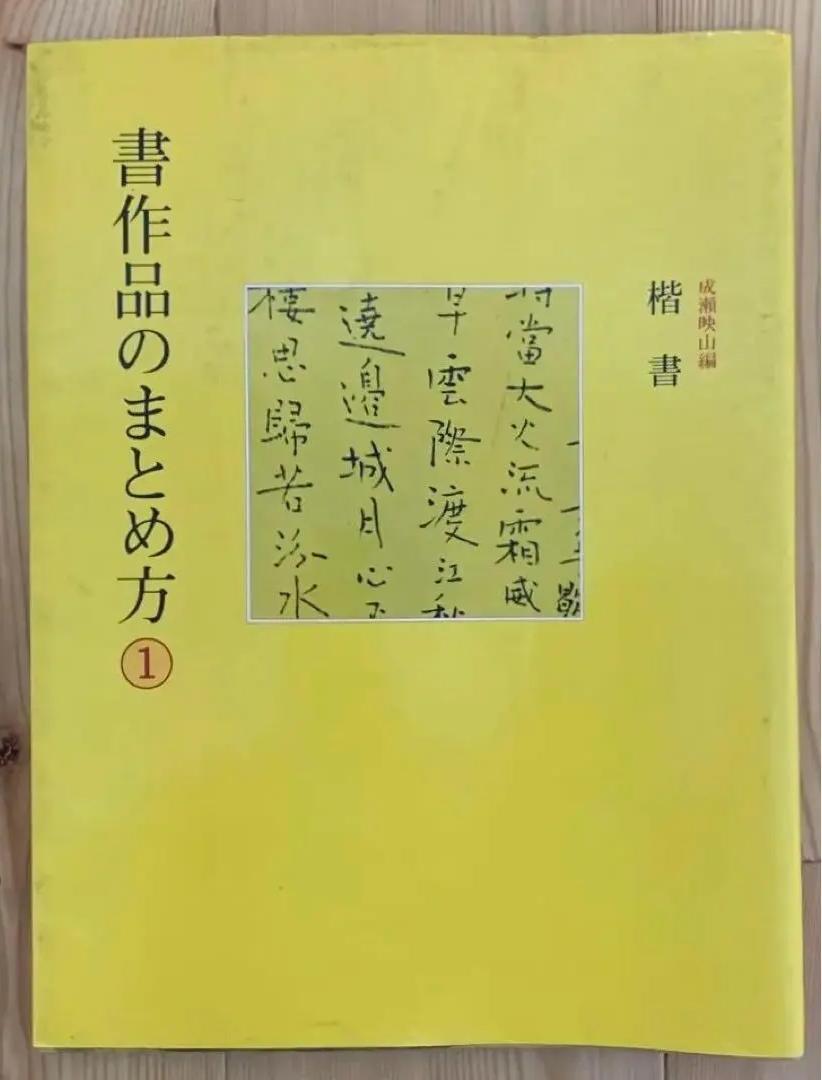 成瀬映山編
楷書
當大火流霜威
雲際渡江
遶邊城月心
棲思歸若汾水
書作品のまとめ方①